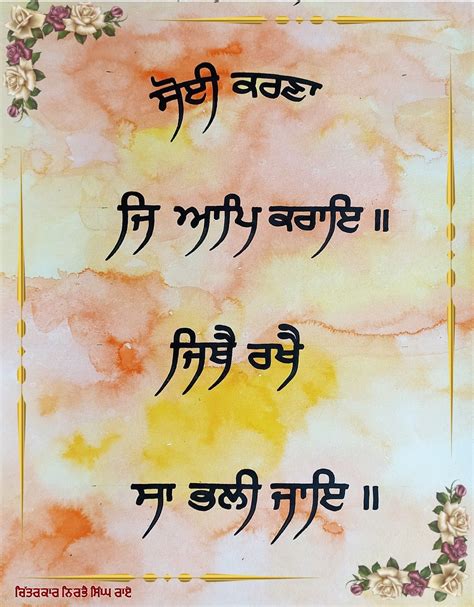 ਸੋਈ ਕਰਣਾ
ਜਿ ਆਪਿ ਕਰਾਇ ॥
ਜਿਥੈ ਰਖੈ
ਸਾ ਭਲੀ ਜਾਇ ॥
ਚਿੱਤਰਕਾਰ ਨਿਰਭੈ ਸਿੰਘ ਰਾਏ